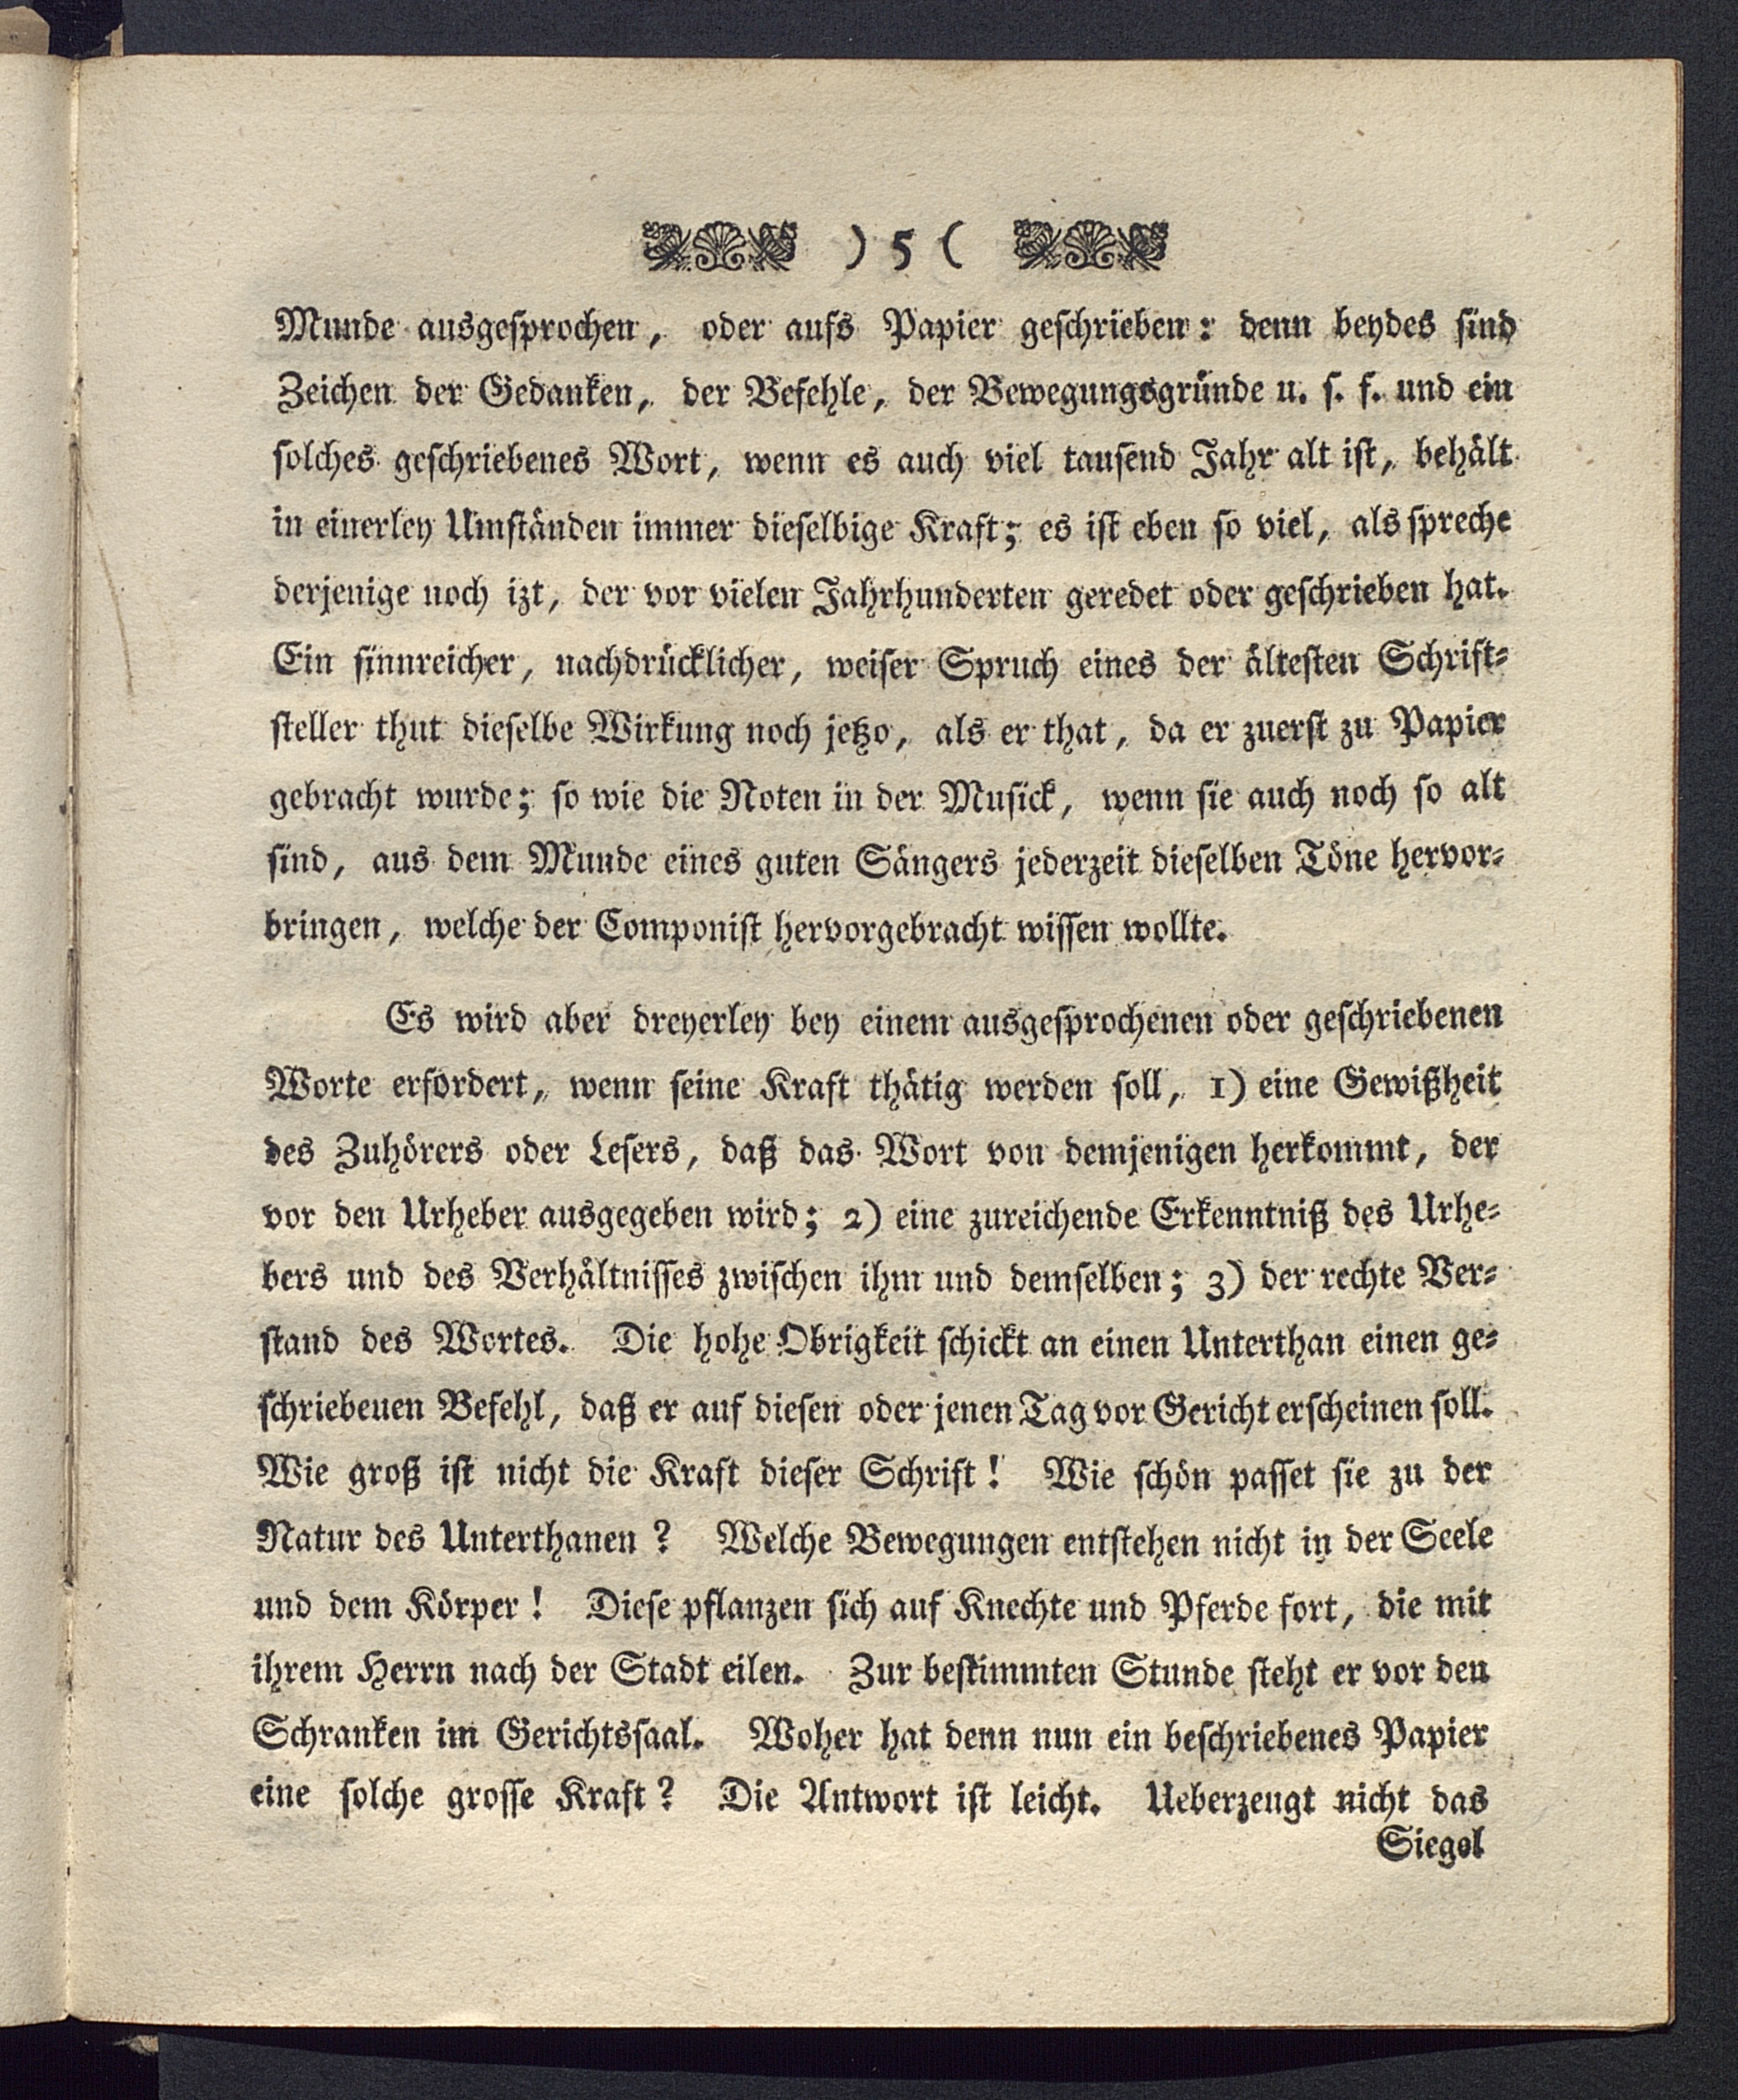 ) 5 (
Munde ausgesprochen, oder aufs Papier geschrieben: denn beydes sind
Zeichen der Gedanken, der Befehle, der Bewegungsgründe u. s. f. und ein
solches geschriebenes Wort, wenn es auch viel tausend Jahr alt ist, behält
in einerley Umständen immer dieselbige Kraft; es ist eben so viel, als spreche
derjenige noch izt, der vor vielen Jahrhunderten geredet oder geschrieben hat.
Ein sinnreicher, nachdrücklicher, weiser Spruch eines der ältesten Schrift-
steller thut dieselbe Wirkung noch jetzo, als er that, da er zuerst zu Papier
gebracht wurde; so wie die Noten in der Musick, wenn sie auch noch so alt
sind, aus dem Munde eines guten Sängers jederzeit dieselben Töne hervor-
bringen, welche der Componist hervorgebracht wissen wollte.
Es wird aber dreyerley bey einem ausgesprochenen oder geschriebenen
Worte erfordert, wenn seine Kraft thätig werden soll, 1) eine Gewißheit
des Zuhörers oder Lesers, daß das Wort von demjenigen herkommt, der
vor den Urheber ausgegeben wird; 2) eine zureichende Erkenntniß des Urhe-
bers und des Verhältnisses zwischen ihm und demselben; 3) der rechte Ver-
stand des Wortes. Die hohe Obrigkeit schickt an einen Unterthan einen ge-
schriebenen Befehl, daß er auf diesen oder jenen Tag vor Gericht erscheinen soll.
Wie groß ist nicht die Kraft dieser Schrift! Wie schön passet sie zu der
Natur des Unterthanen? Welche Bewegungen entstehen nicht in der Seele
und dem Körper! Diese pflanzen sich auf Knechte und Pferde fort, die mit
ihrem Herrn nach der Stadt eilen. Zur bestimmten Stunde steht er vor den
Schranken im Gerichtssaal. Woher hat denn nun ein beschriebenes Papier
eine solche grosse Kraft? Die Antwort ist leicht. Ueberzeugt nicht das
Siegel